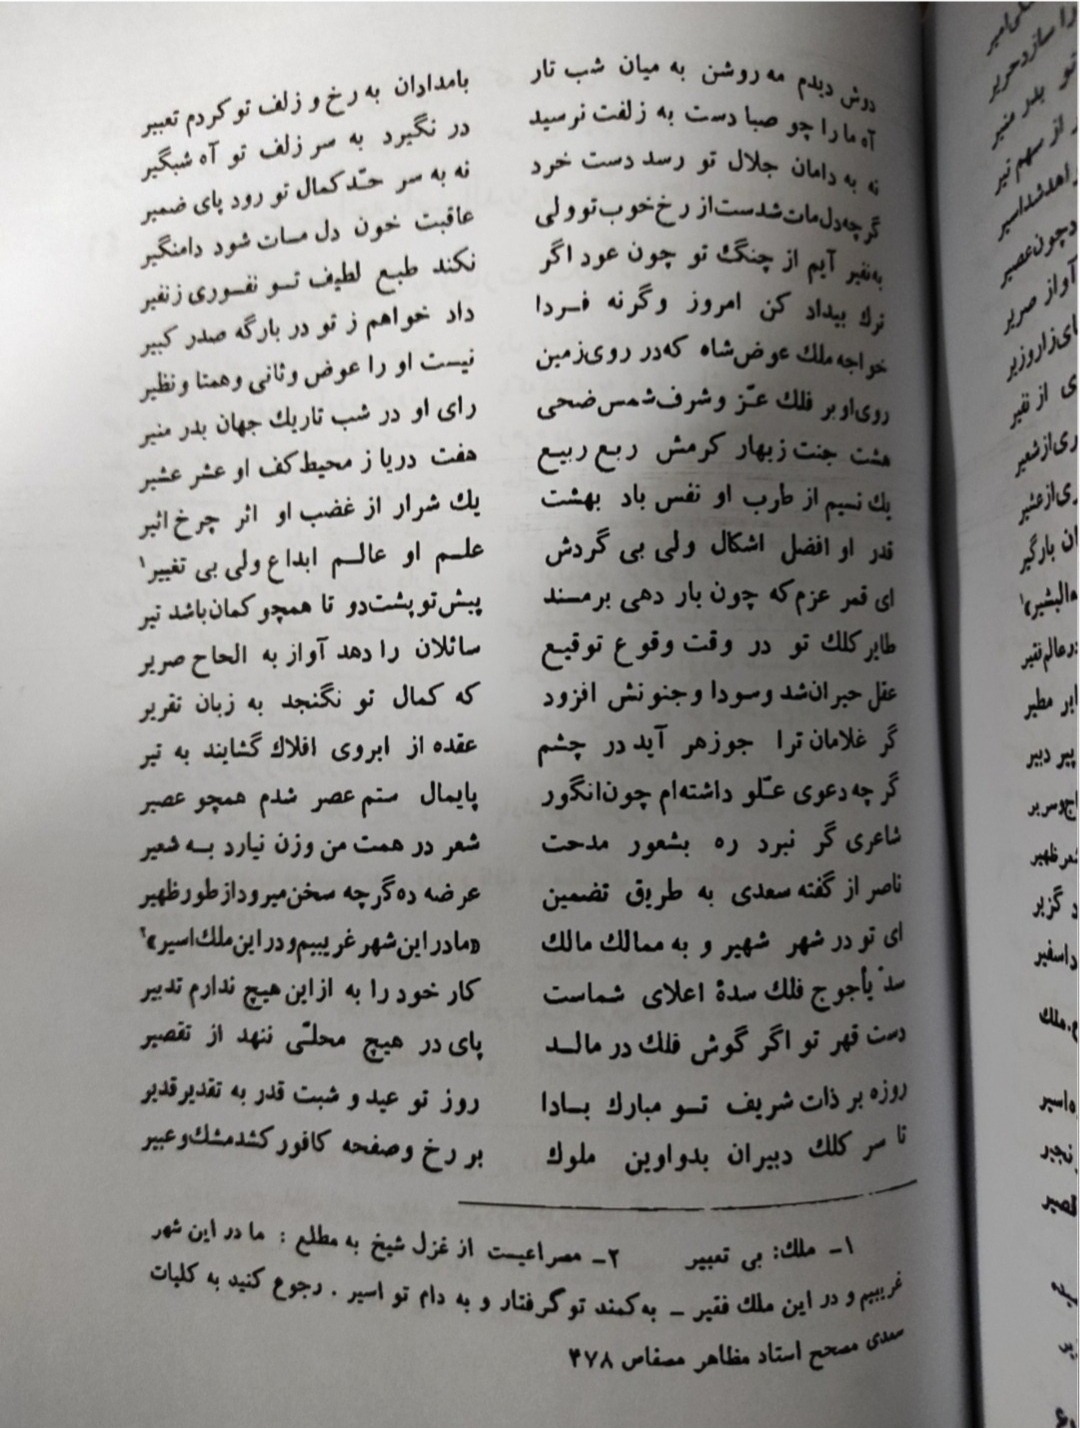 دوش دیدم مه روشن به میان شب تار بامدادان به رخ و زلف تو کردم تعبیر
آه ما را چو صبا دست به زلفت نرسید در نگیرد به سر زلف تو آه شبگیر
نه به دامان جلال تو رسد دست خرد نه به سر حدّ کمال تو رود پای ضمیر
گرچه دل مات شدست از رخ خوب تو ولی عاقبت خون دل مات شود دامنگیر
به نفیر آیم از چنگ تو چون عود اگر نکند طبع لطیف تو نفوری ز نفیر
ترك بیداد کن امروز و گرنه فردا داد خواهم ز تو در بارگه صدر کبیر
خواجه ملك عوض شاه که در روی زمین نیست او را عوض و ثانی و همتا و نظیر
روی او بر فلك عزّ و شرف شمس ضحی رای او در شب تاریك جهان بدر منیر
هشت جنت ز بهار کرمش ربع ربیع هفت دریا ز محیط کف او عشر عشیر
یك نسیم از طرب او نفس باد بهشت یك شرار از غضب او اثر چرخ اثیر
قدر او افضل اشکال ولی بی گردش علم او عالم ابداع ولی بی تغییر۱
ای قمر عزم که چون بار دهی بر مسند پیش تو پشت دو تا همچو کمان باشد تیر
طایر کلك تو در وقت وقوع توقیع سائلان را دهد آواز به الحاح صریر
عقل حیران شد و سودا و جنونش افزود که کمال تو نگنجد به زبان تقریر
گر غلامان ترا جوزهر آید در چشم عقده از ابروی افلاك گشایند به تیر
گرچه دعوی علّو داشته‌ام چون انگور پایمال ستم عصر شدم همچو عصیر
شاعری گر نبرد ره بشعور مدحت شعر در همت من وزن نیارد به شعیر
ناصر از گفته سعدی به طریق تضمین عرضه ده گرچه سخن میرود از طور ظهیر
ای تو در شهر شهیر و به ممالك مالك «ما در این شهر غریبیم و در این ملك اسیر»۲
سدّ یأجوج فلك سدهٔ اعلای شماست کار خود را به از این هیچ ندارم تدبیر
دست قهر تو اگر گوش فلك در مالد پای در هیچ محلّی ننهد از تقصیر
روزه بر ذات شریف تو مبارك بادا روز تو عید و شبت قدر به تقدیر قدیر
تا سر کلك دبیران بدواوین ملوك بر رخ و صفحه کافور کشد مشك و عبیر
۱- ملك: بی تعبیر ۲- مصراعیست از غزل شیخ به مطلع : ما در این شهر
غریبیم و در این ملك فقیر – به کمند تو گرفتار و به دام تو اسیر . رجوع کنید به کلیات
سعدی مصحح استاد مظاهر مصفا ص ۴۷۸